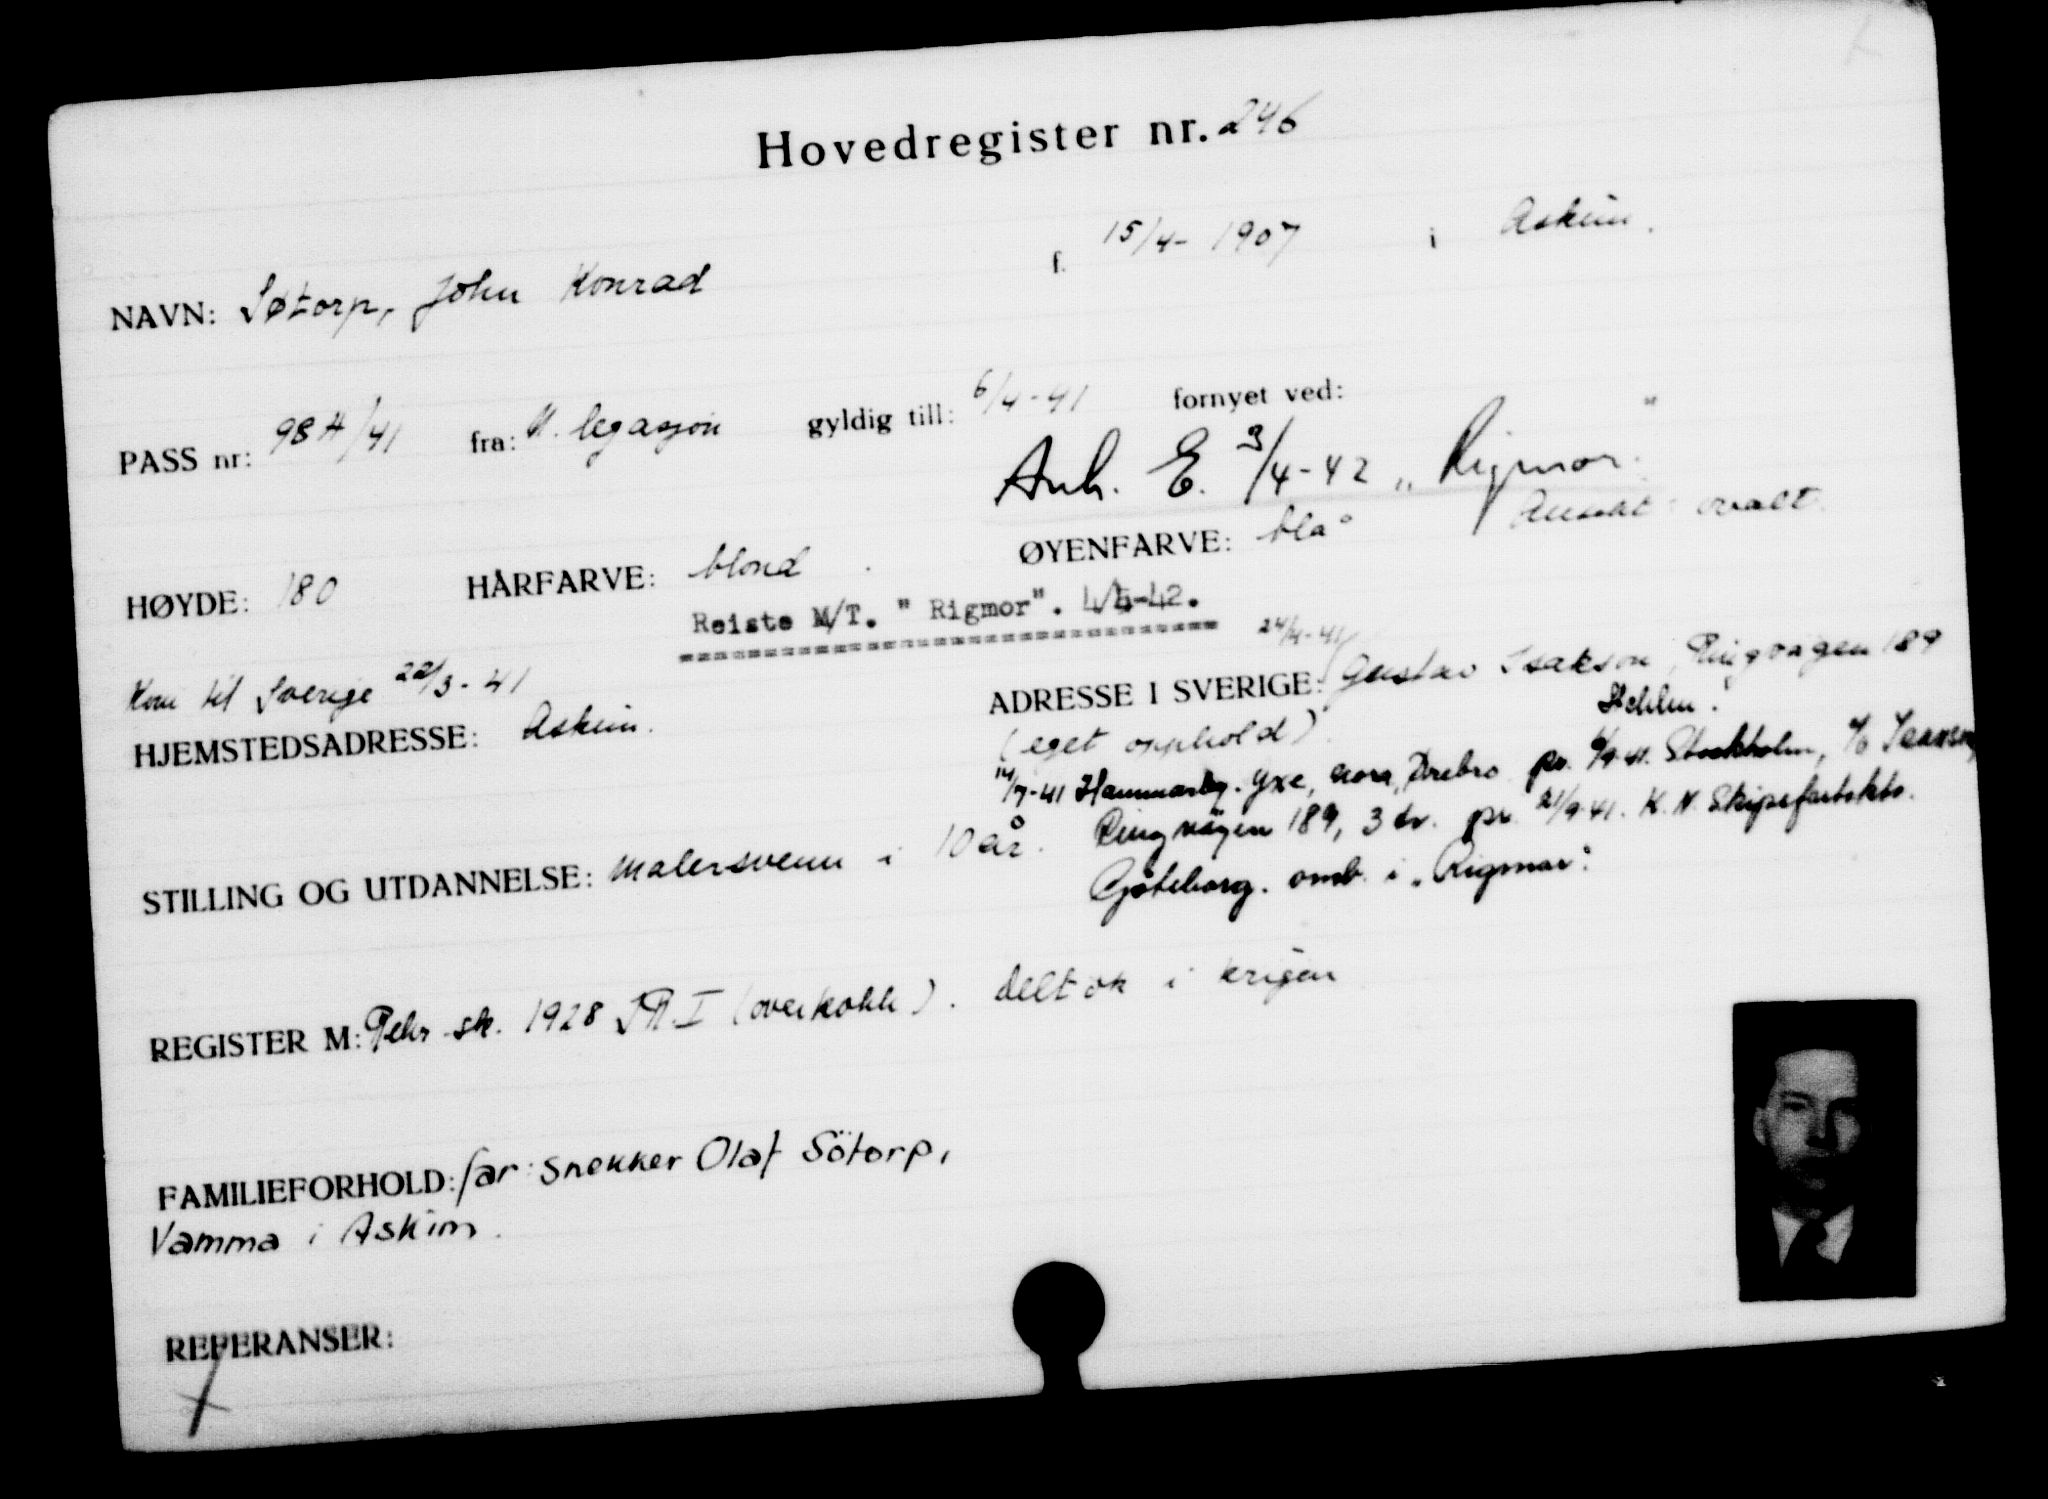 Hovedregister nr. 246
NAVN: Søtorp, John Konrad f. 15/4- 1907 i Askim.
PASS nr: 98 H/41 fra: N. legasjon gyldig till: 6/4-41 fornyet ved:
Anh. E. 3/4-42 „Rigmor"
HØYDE: 180 HÅRFARVE: blond ØYENFARVE: blå Ansikt: ovalt
Reiste M/T. "Rigmor". 4/4-42.
Kom til Sverige 22/3-41
HJEMSTEDSADRESSE: Askim.
24/4-41
ADRESSE I SVERIGE: Gustav Isakson, Ringvägen 189
Sthlm.
(eget opphold)
14/7-41 Hammarby. Yxe, Nora, Örebro pr. 4/9-41. Stockholm, c/o
Ringvägen 189, 3 tr. pr. 21/9-41. K. N. Skipsfartskto.
Göteborg. omb. i „Rigmor".
STILLING OG UTDANNELSE: malersvenn i 10 år.
REGISTER M: Rekr. sk. 1928 I (overkokk). deltok i krigen
FAMILIEFORHOLD: far: snekker Olaf Sötorp,
Vamma i Askim.
REFERANSER: